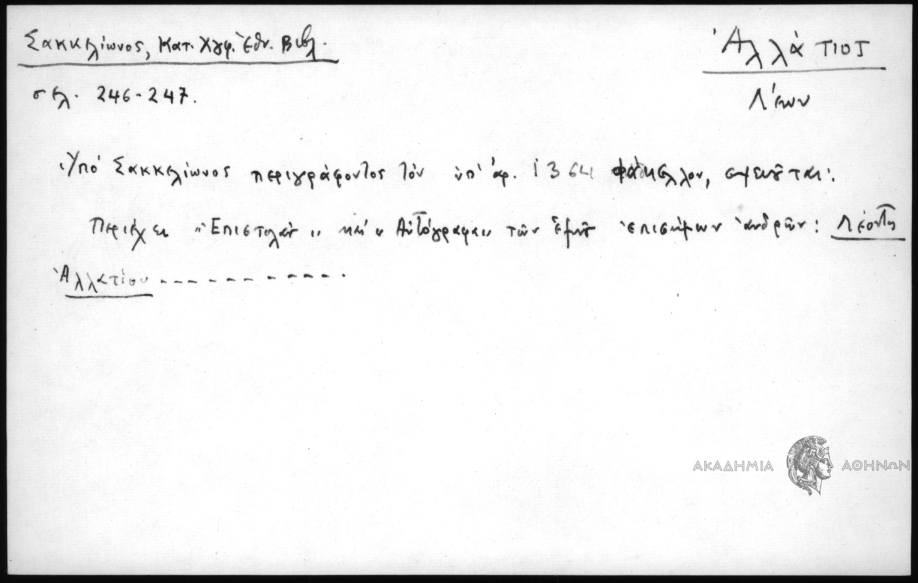 Σακκελίωνος, Κατ. Χγφ. Ἐθν. Βιβλ.
σελ. 246-247.
Ἀλλάτιος
Λέων
Ὑπό Σακκελίωνος περιγράφοντος τόν ὑπ' ἀρ. 1364 φάκελλον, σημειοῦται:
Περιέχει "Ἐπιστολάς" καί "Αὐτόγραφα" τῶν ἑξῆς ἐπισήμων ἀνδρῶν: Λέοντος
Ἀλλατίου - - - - - - - - - - .
ΑΚΑΔΗΜΙΑ ΑΘΗΝΩΝ